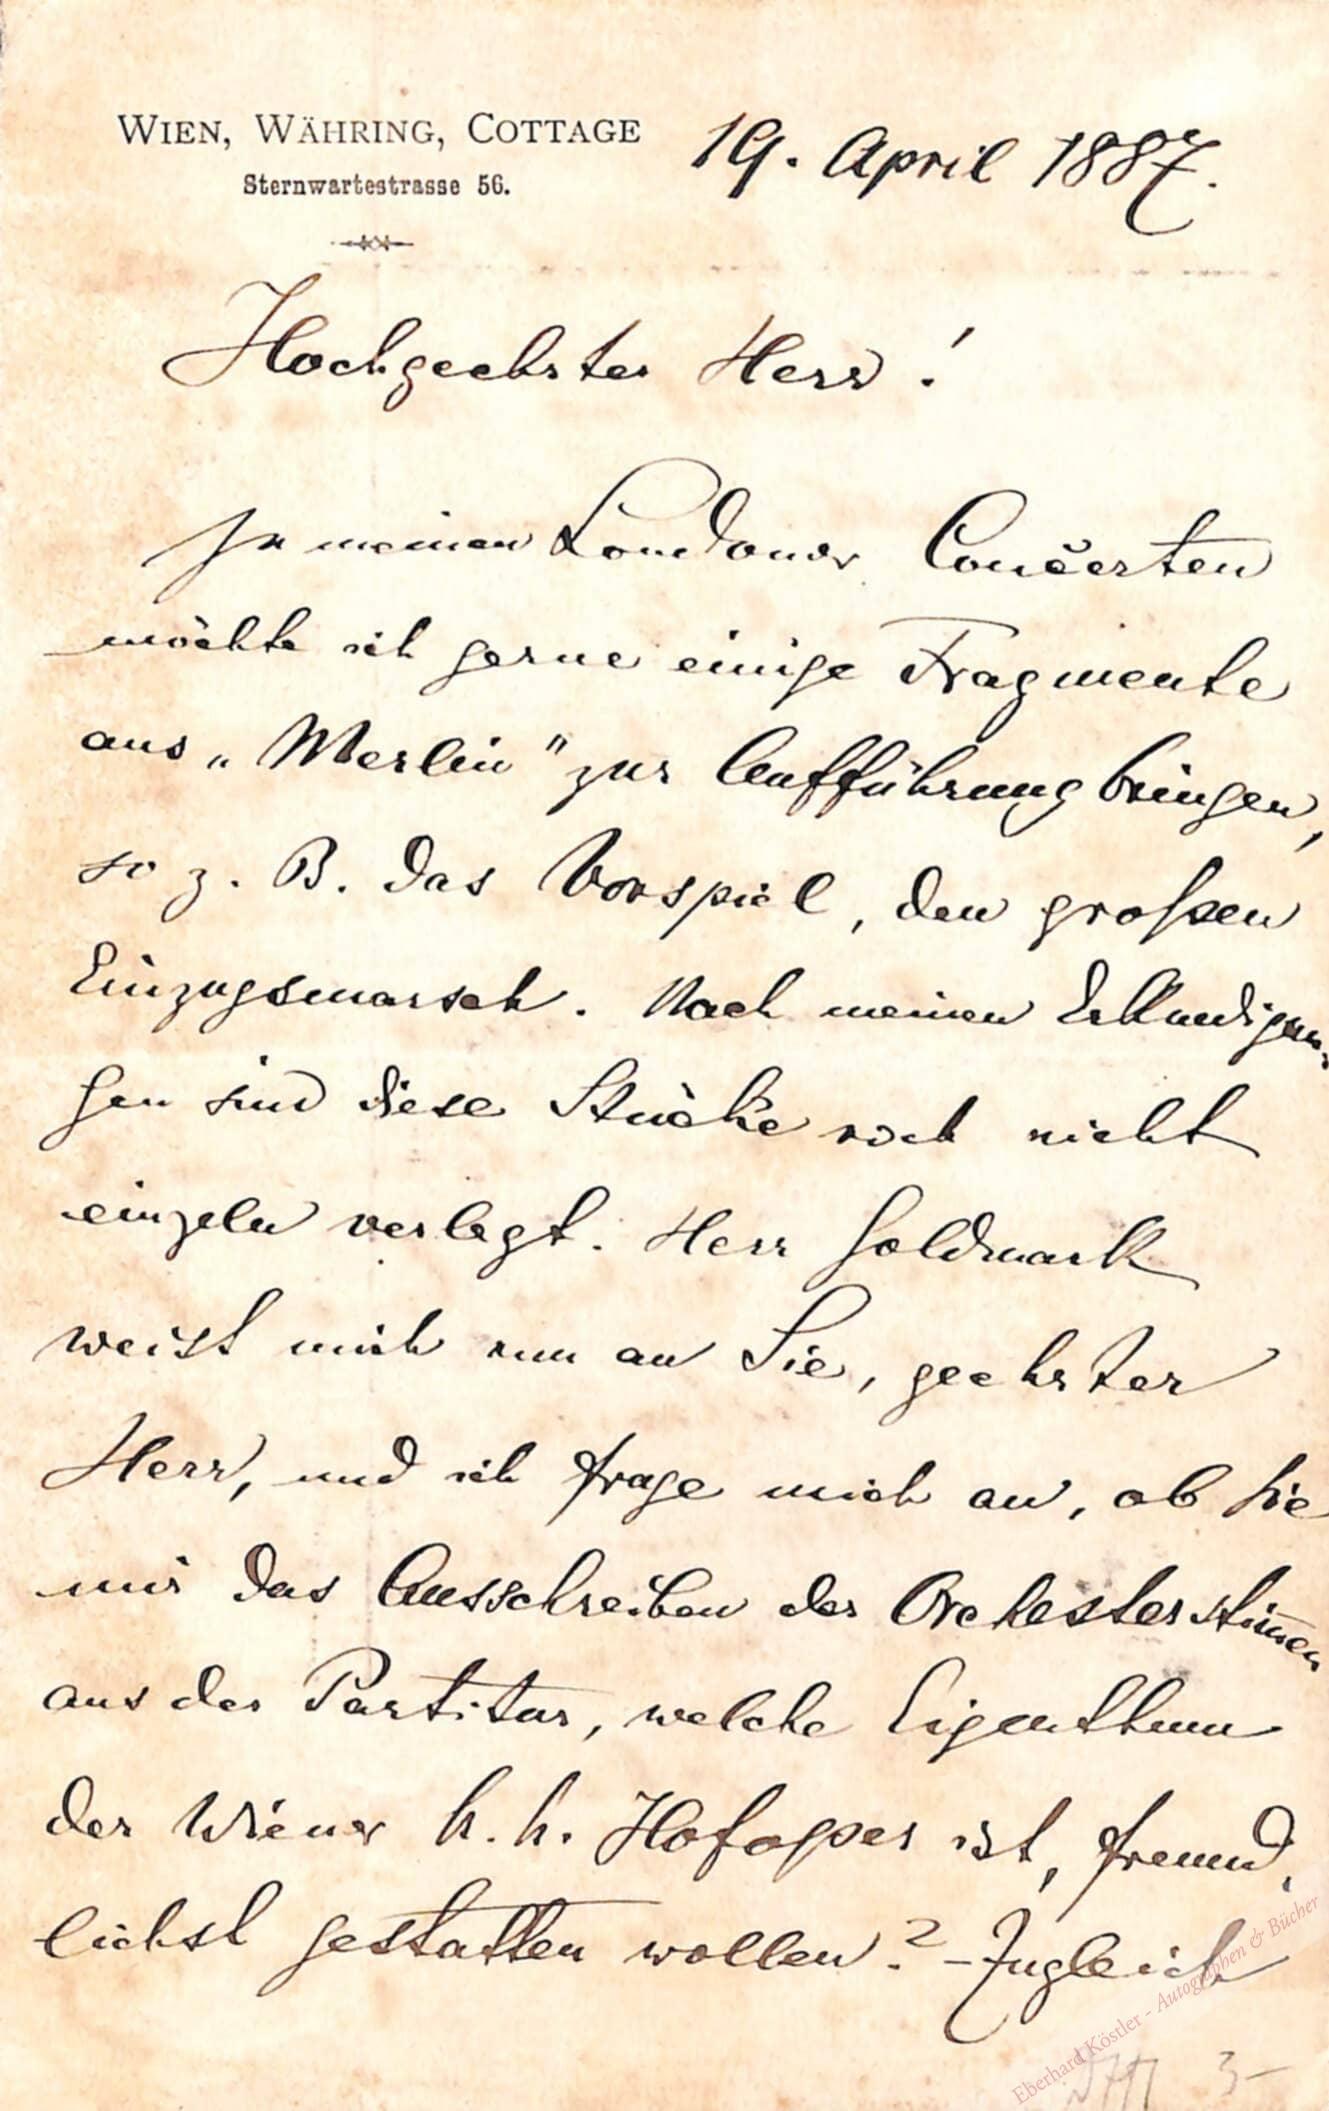 WIEN, WÄHRING, COTTAGE
Sternwartestrasse 56.
19. April 1887.
Hochgeehrter Herr!
In meinen Londoner Concerten
möchte ich gerne einige Fragmente
aus „Merlin" zur Aufführung bringen,
so z. B. das Vorspiel, den großen
Einzugsmarsch. Nach meinen Erkundigun-
gen sind diese Stücke noch nicht
einzeln verlegt. Herr Goldmark
weist mich nun an Sie, geehrter
Herr, und ich frage mich an, ob Sie
mir das Ausschreiben der Orchesterstim̅en
aus der Partitur, welche Eigenthum
der Wiener k. k. Hofoper ist, freund-
lichst gestatten wollen? – Zugleich
Eberhard Köstler - Autographen & Bücher
3-